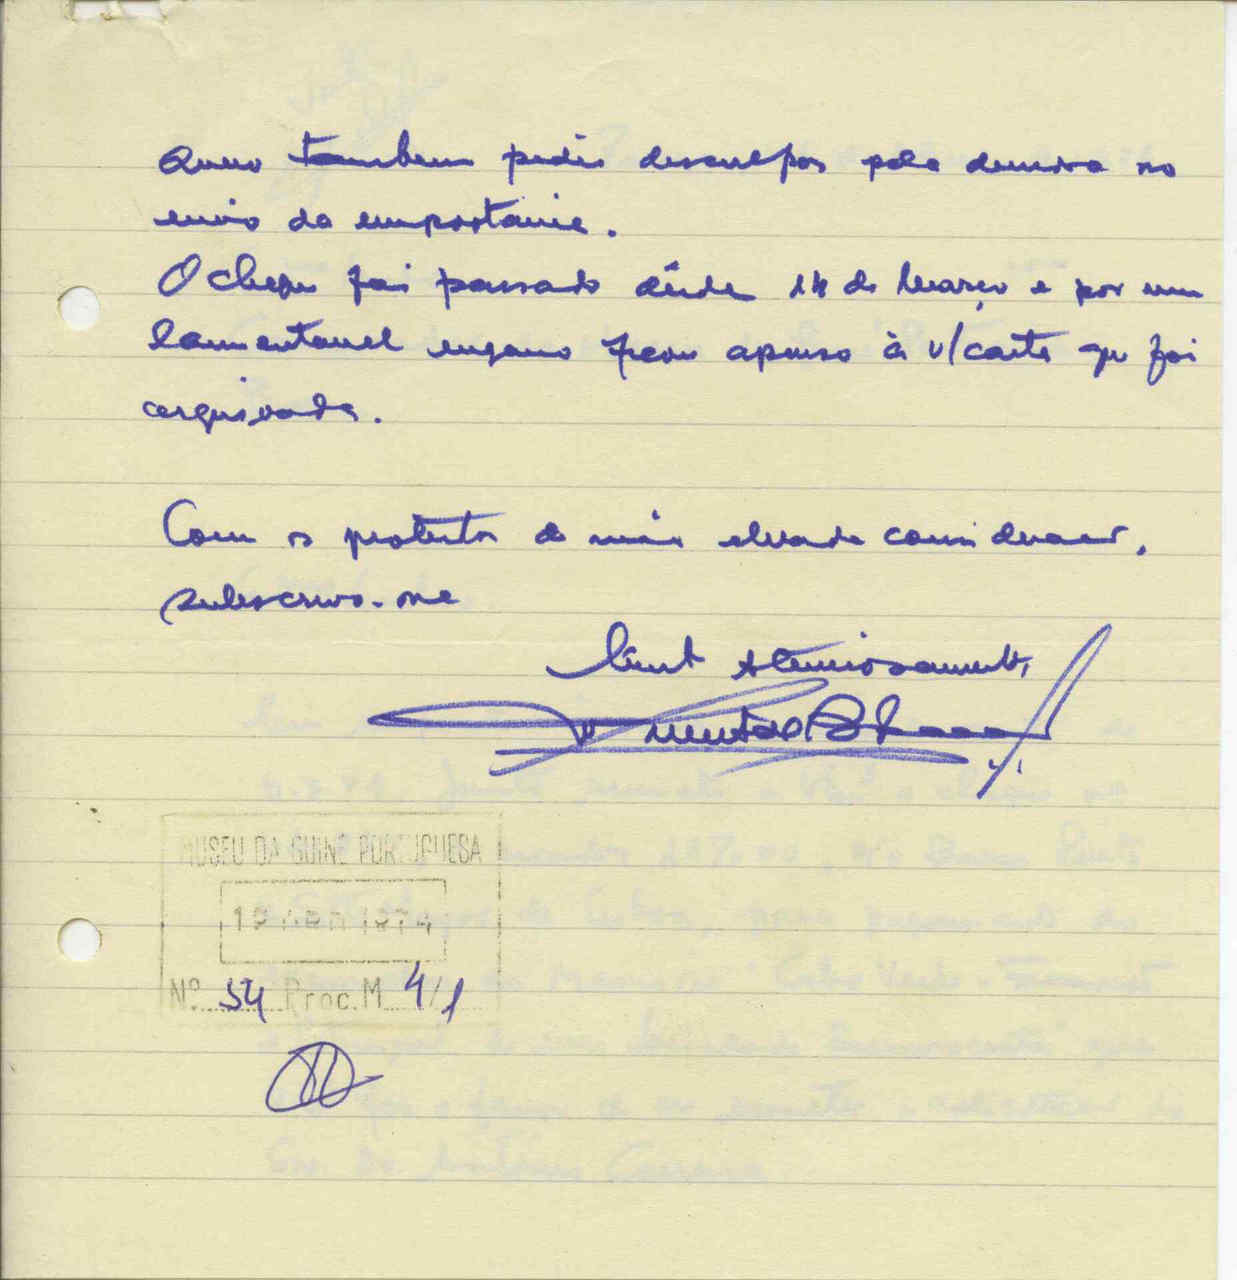 Quero tambem pedir desculpas pela demora no
envio da importancia.
O cheque foi passado desde 14 de Março e por um
lamentavel engano ficou apenso à v/carta que foi
arquivada.
Com os protestos de mais elevada consideração,
subscrevo-me
Atenciosamente,
MUSEU DA GUINÉ PORTUGUESA
19 ABR 1974
Nº 54 Proc. M 4/1